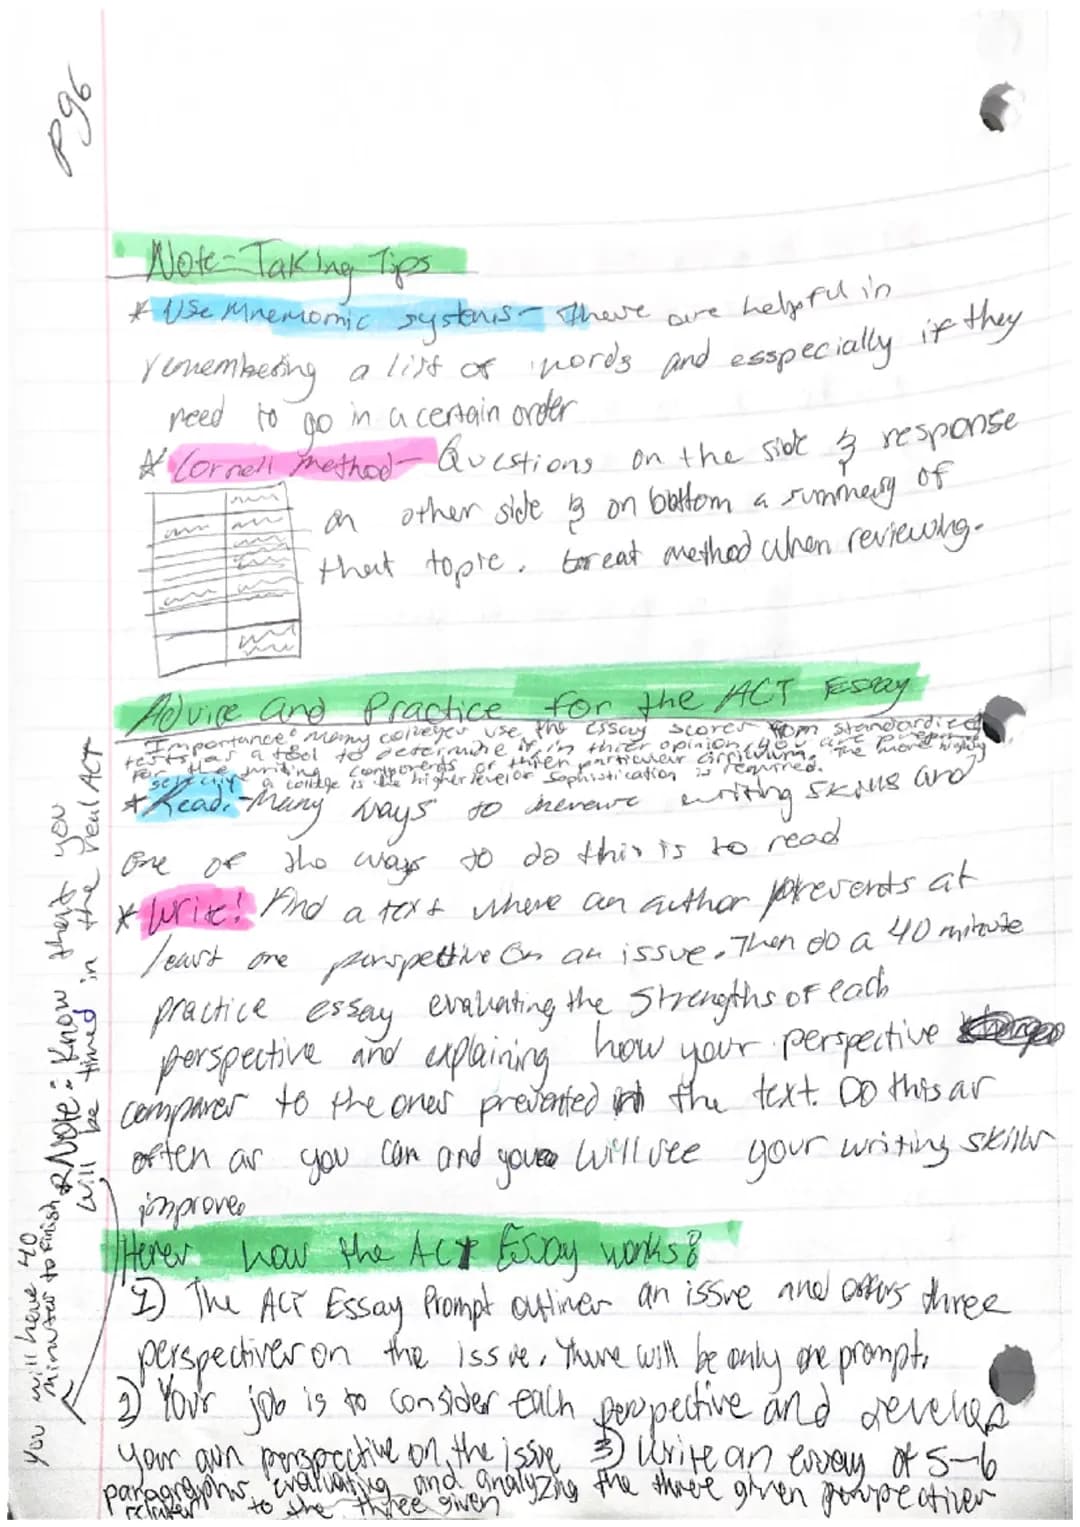 P96
Note-Taking Tips
* Use Mnemomic systems- These are helpful in
remembering a list of words and esspecially if they
need to go in a certain order
* Cornell method- Questions on the side & response
on other side & on bottom a summary of
that topic. Great method when reviewing.
Advice and Practice for the ACT Essay
Importance: Many colleges use the essay scores from standardized
tests as a tool to determine if, in their opinion, you are
for the writing components of their particular cirriculum. The more highly
a college is the higher level of sophistication is required.
* Read.-Many ways to increase writing skills and
one of the ways to do this is to read
* Write! Find a text where an author presents at
least one perspective on an issue. Then do a 40 minute
practice essay evaluating the strengths of each
perspective and explaining how your perspective
compares to the ones presented in the text. Do this as
often as you can and you will see your writing skills
improve.
Heres how the ACT Essay works:
1) The ACT Essay Prompt outlines an issue and offers three
perspectives on the issue. There will be only one prompt.
2) Your job is to consider each perspective and develop
your own perspective on the issue 3) Write an essay of 5-6
paragraphs evaluating and analyzing the three given perspectives
to the three given
* Note: Know that you
will be timed in the real ACT
You will have 40
minutes to finish